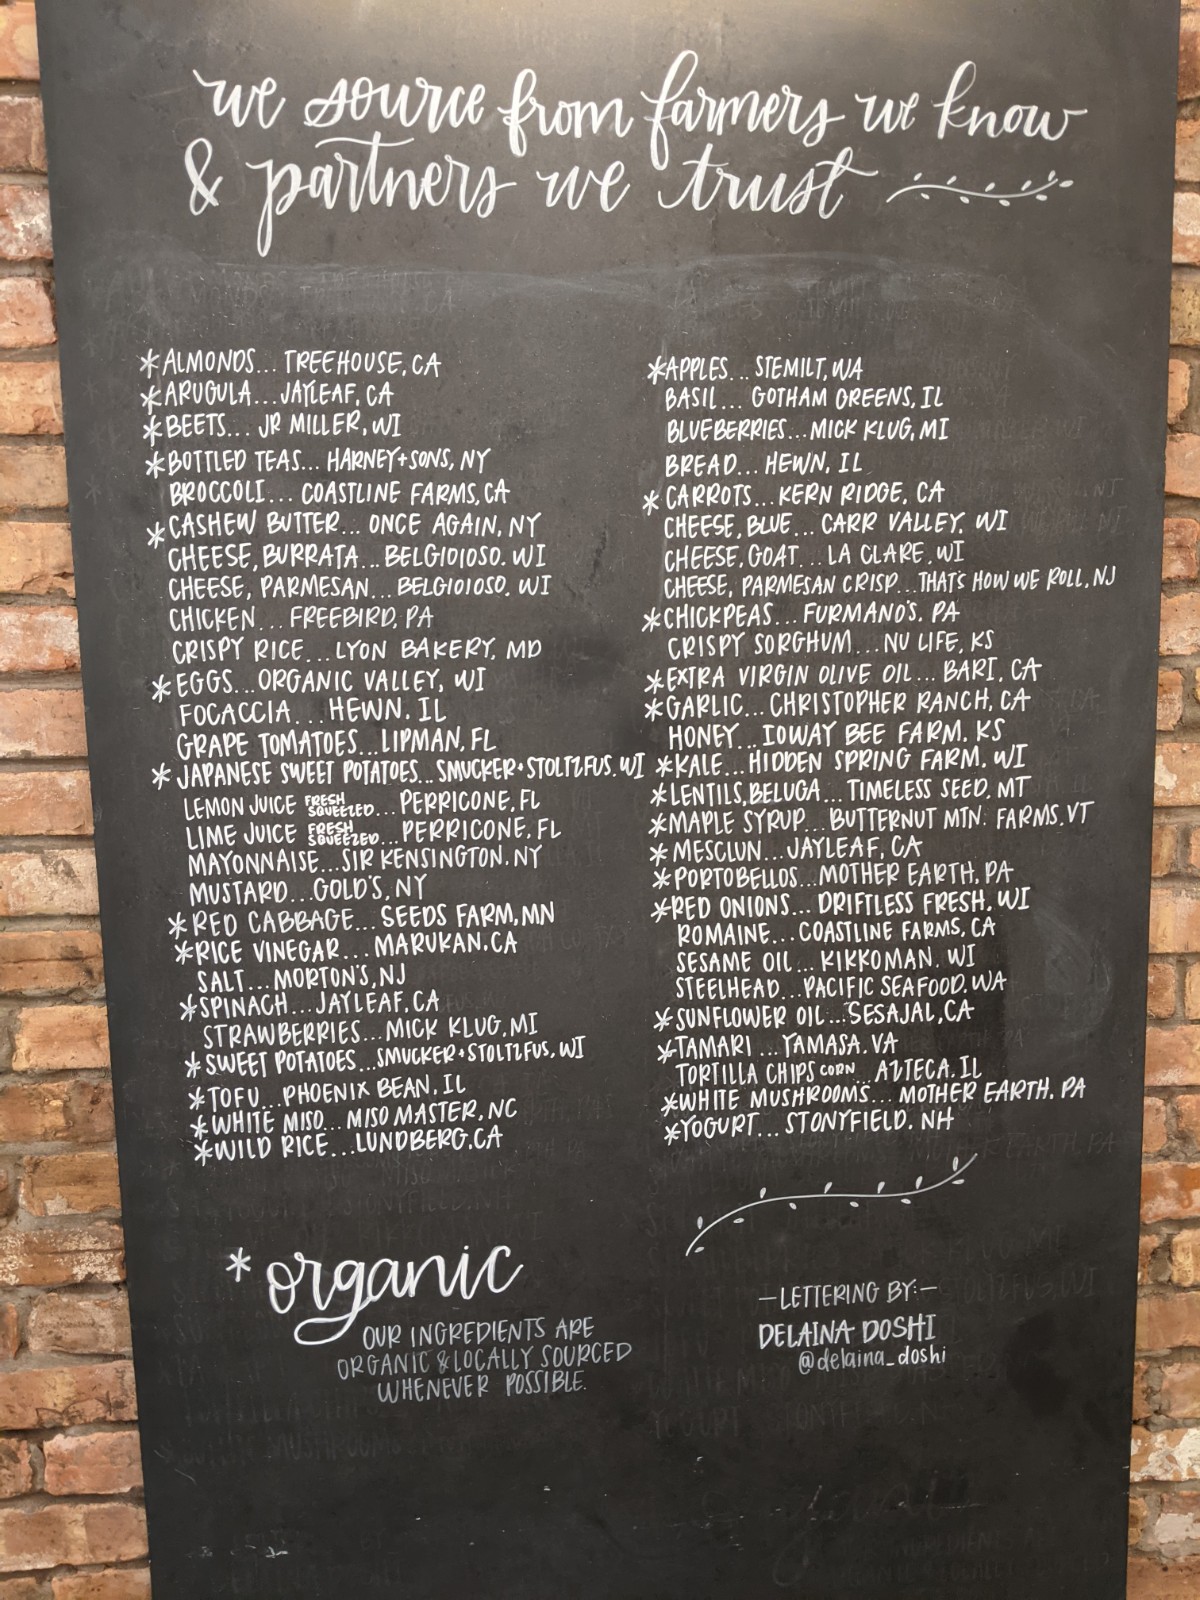 we source from farmers we know
& partners we trust
*ALMONDS... TREEHOUSE, CA
*ARUGULA... JAYLEAF, CA
*BEETS... JR MILLER, WI
*BOTTLED TEAS... HARNEY+SONS, NY
BROCCOLI... COASTLINE FARMS, CA
*CASHEW BUTTER... ONCE AGAIN, NY
CHEESE, BURRATA... BELGIOIOSO. WI
CHEESE, PARMESAN... BELGIOIOSO. WI
CHICKEN... FREEBIRD, PA
CRISPY RICE... LYON BAKERY, MD
*EGGS... ORGANIC VALLEY, WI
FOCACCIA... HEWN. IL
GRAPE TOMATOES... LIPMAN, FL
*JAPANESE SWEET POTATOES... SMUCKER+STOLTZFUS. WI
LEMON JUICE FRESH SQUEEZED... PERRICONE, FL
LIME JUICE FRESH SQUEEZED... PERRICONE, FL
MAYONNAISE... SIR KENSINGTON. NY
MUSTARD... GOLD'S, NY
*RED CABBAGE... SEEDS FARM, MN
*RICE VINEGAR... MARUKAN. CA
SALT... MORTON'S, NJ
*SPINACH... JAYLEAF, CA
STRAWBERRIES... MICK KLUG, MI
*SWEET POTATOES... SMUCKER+STOLTZFUS, WI
*TOFU... PHOENIX BEAN, IL
*WHITE MISO... MISO MASTER, NC
*WILD RICE... LUNDBERG, CA
*APPLES... STEMILT, WA
BASIL... GOTHAM GREENS, IL
BLUEBERRIES... MICK KLUG, MI
BREAD... HEWN, IL
*CARROTS... KERN RIDGE, CA
CHEESE, BLUE... CARR VALLEY. WI
CHEESE, GOAT... LA CLARE, WI
CHEESE, PARMESAN CRISP... THAT'S HOW WE ROLL, NJ
*CHICKPEAS... FURMANO'S, PA
CRISPY SORGHUM... NU LIFE, KS
*EXTRA VIRGIN OLIVE OIL... BARI, CA
*GARLIC... CHRISTOPHER RANCH, CA
HONEY... IOWAY BEE FARM. KS
*KALE... HIDDEN SPRING FARM. WI
*LENTILS, BELUGA... TIMELESS SEED, MT
*MAPLE SYRUP... BUTTERNUT MTN. FARMS, VT
*MESCLUN... JAYLEAF, CA
*PORTOBELLOS... MOTHER EARTH, PA
*RED ONIONS... DRIFTLESS FRESH. WI
ROMAINE... COASTLINE FARMS, CA
SESAME OIL... KIKKOMAN. WI
STEELHEAD... PACIFIC SEAFOOD. WA
*SUNFLOWER OIL... SESAJAL, CA
*TAMARI... YAMASA. VA
TORTILLA CHIPS CORN... AZTECA. IL
*WHITE MUSHROOMS... MOTHER EARTH. PA
*YOGURT... STONYFIELD. NH
*organic
OUR INGREDIENTS ARE
ORGANIC & LOCALLY SOURCED
WHENEVER POSSIBLE.
—LETTERING BY:—
DELAINA DOSHI
@delaina_doshi